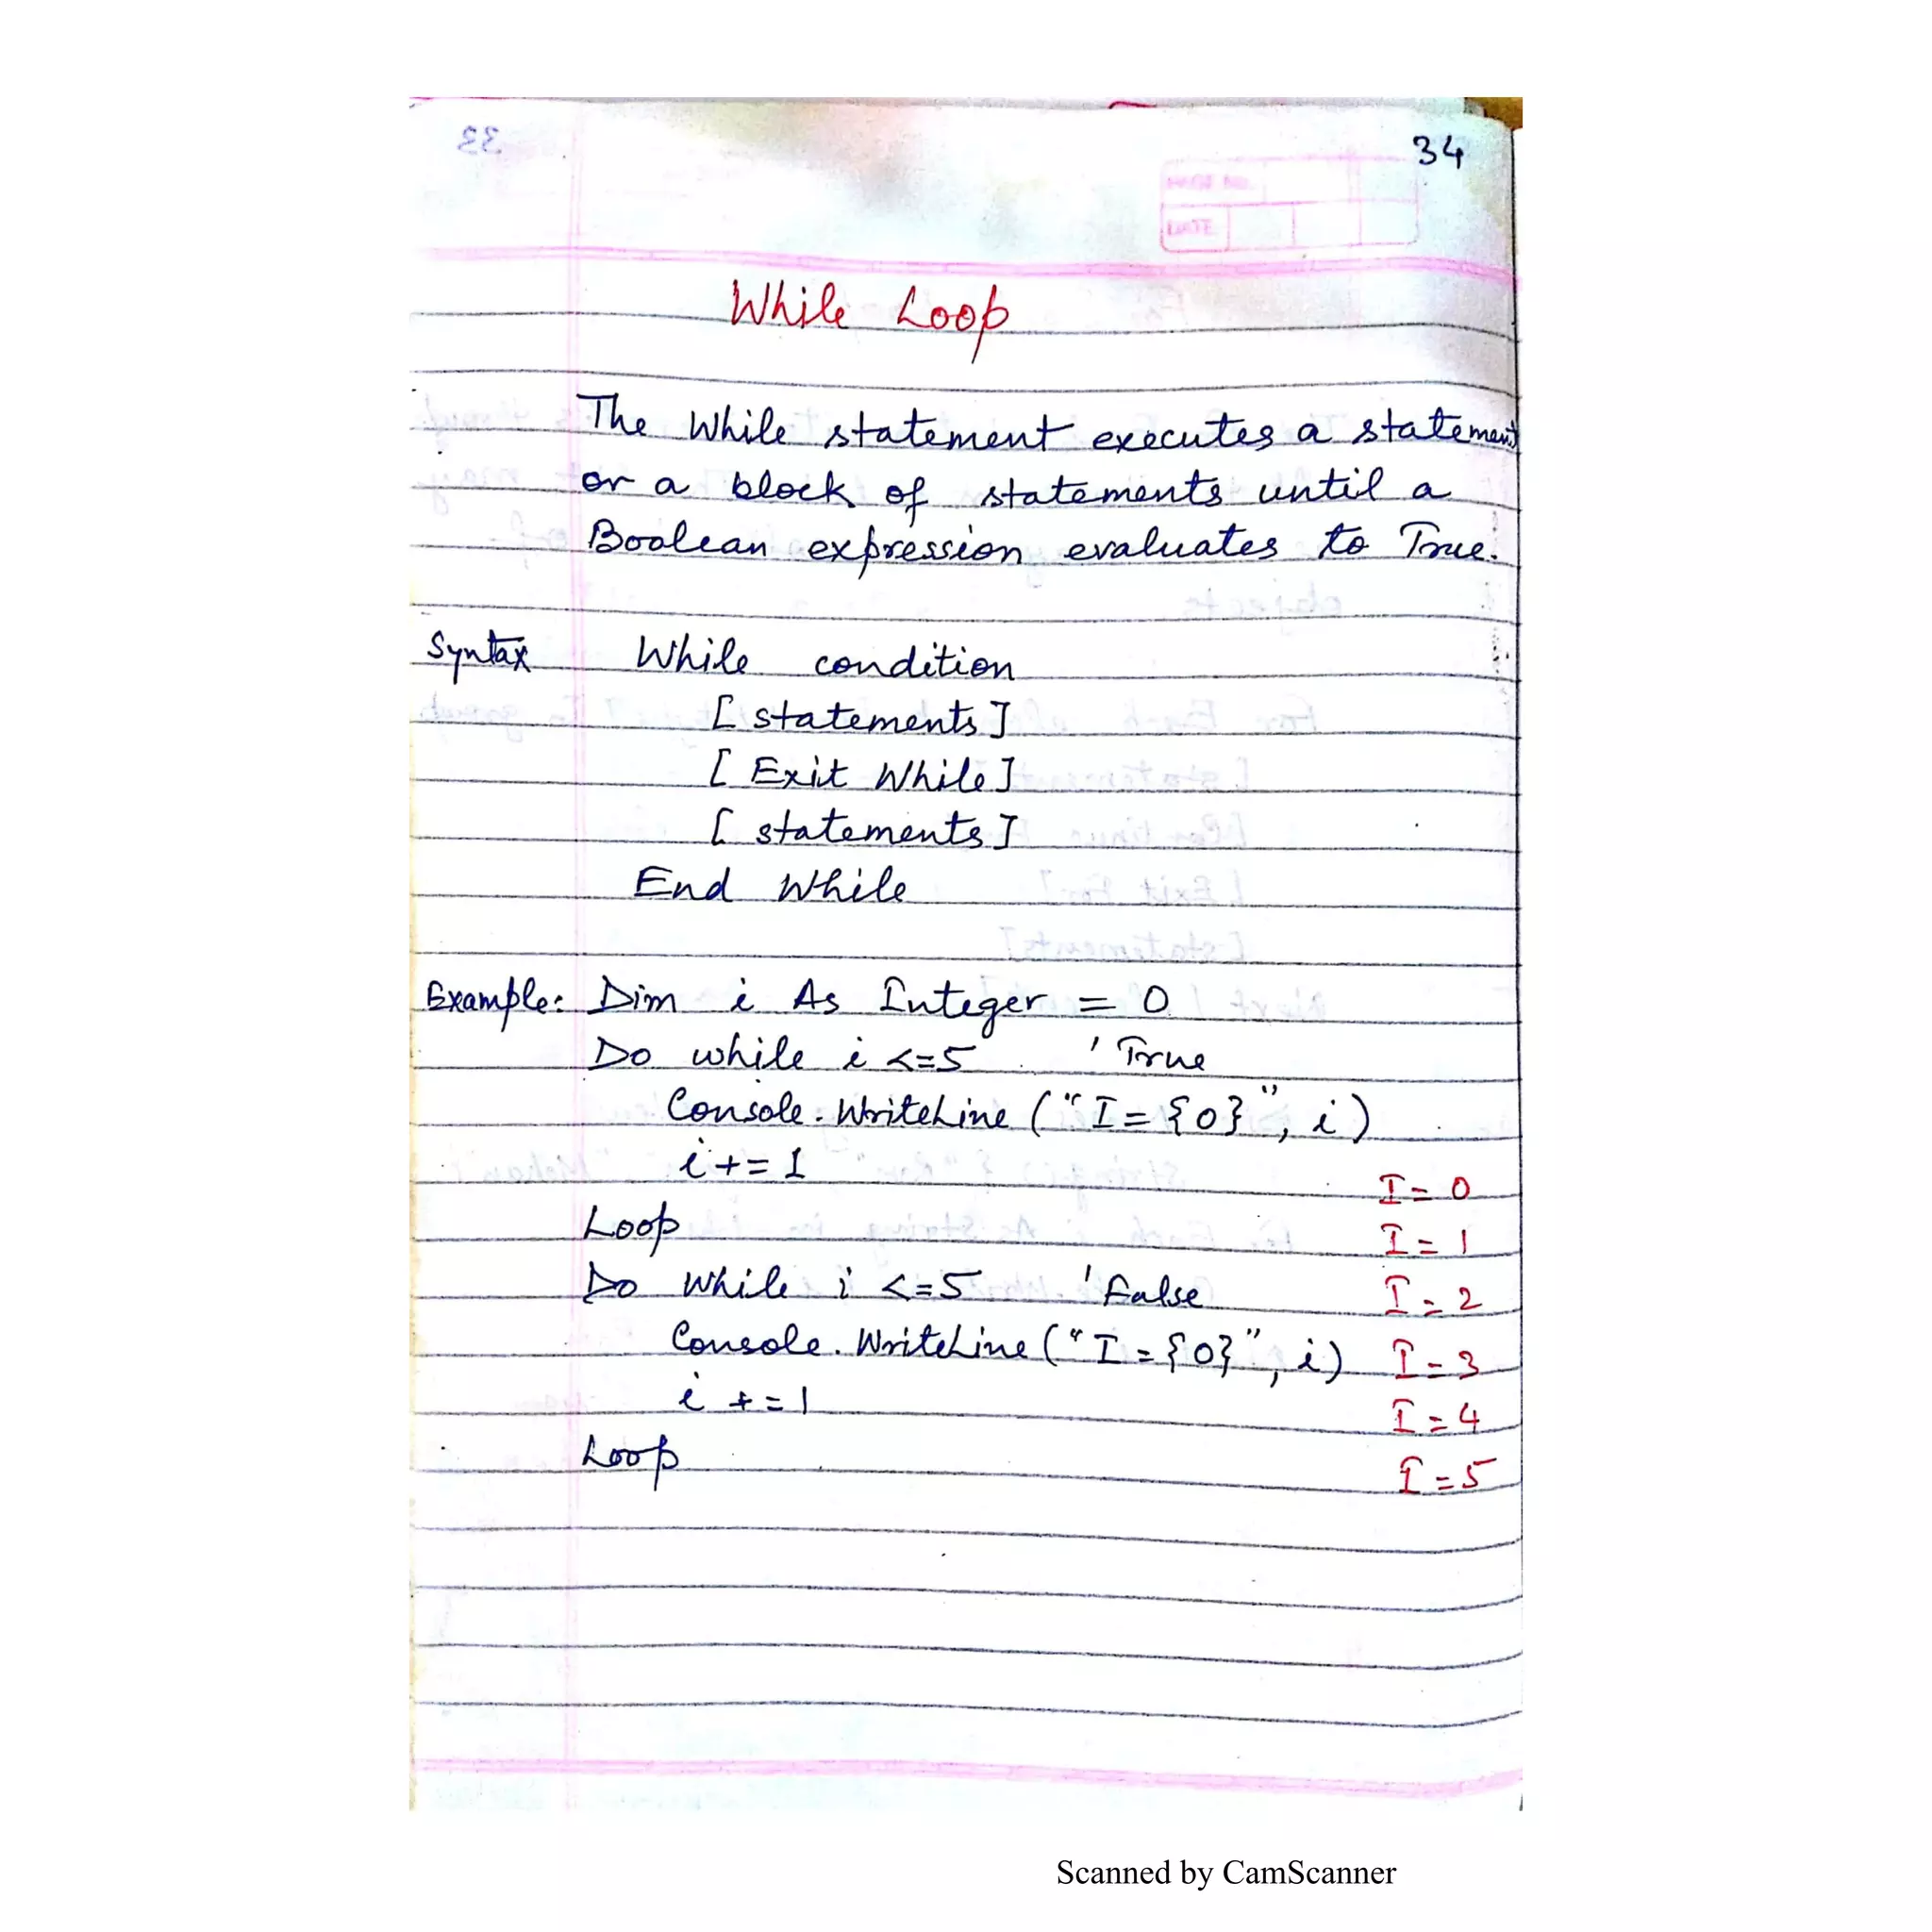 34
PAGE NO.
DATE
While Loop
The While statement executes a statement
or a block of statements until a
Boolean expression evaluates to True.
Syntax While condition
[statements]
[Exit While]
[statements]
End While
Example: Dim i As Integer = 0
Do while i <=5 ' True
Console.WriteLine ("I = {0}", i)
i += 1
Loop
Do While i <=5 ' False
Console.WriteLine ("I = {0}", i)
i += 1
Loop
I = 0
I = 1
I = 2
I = 3
I = 4
I = 5
Scanned by CamScanner